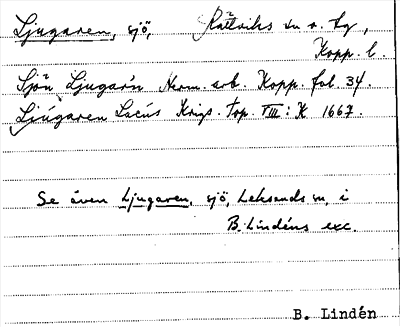 Ljugaren, sjö, Rättviks sn o. tg,
Kopp. l.
Sjön Ljugar̊n Herm. arb. Kopp. fol. 34.
Ljúgaren Lacús Krigs. top. VIII: K 1667.
Se även Ljugaren, sjö, Leksands sn, i
B. Lindéns exc.
B. Lindén